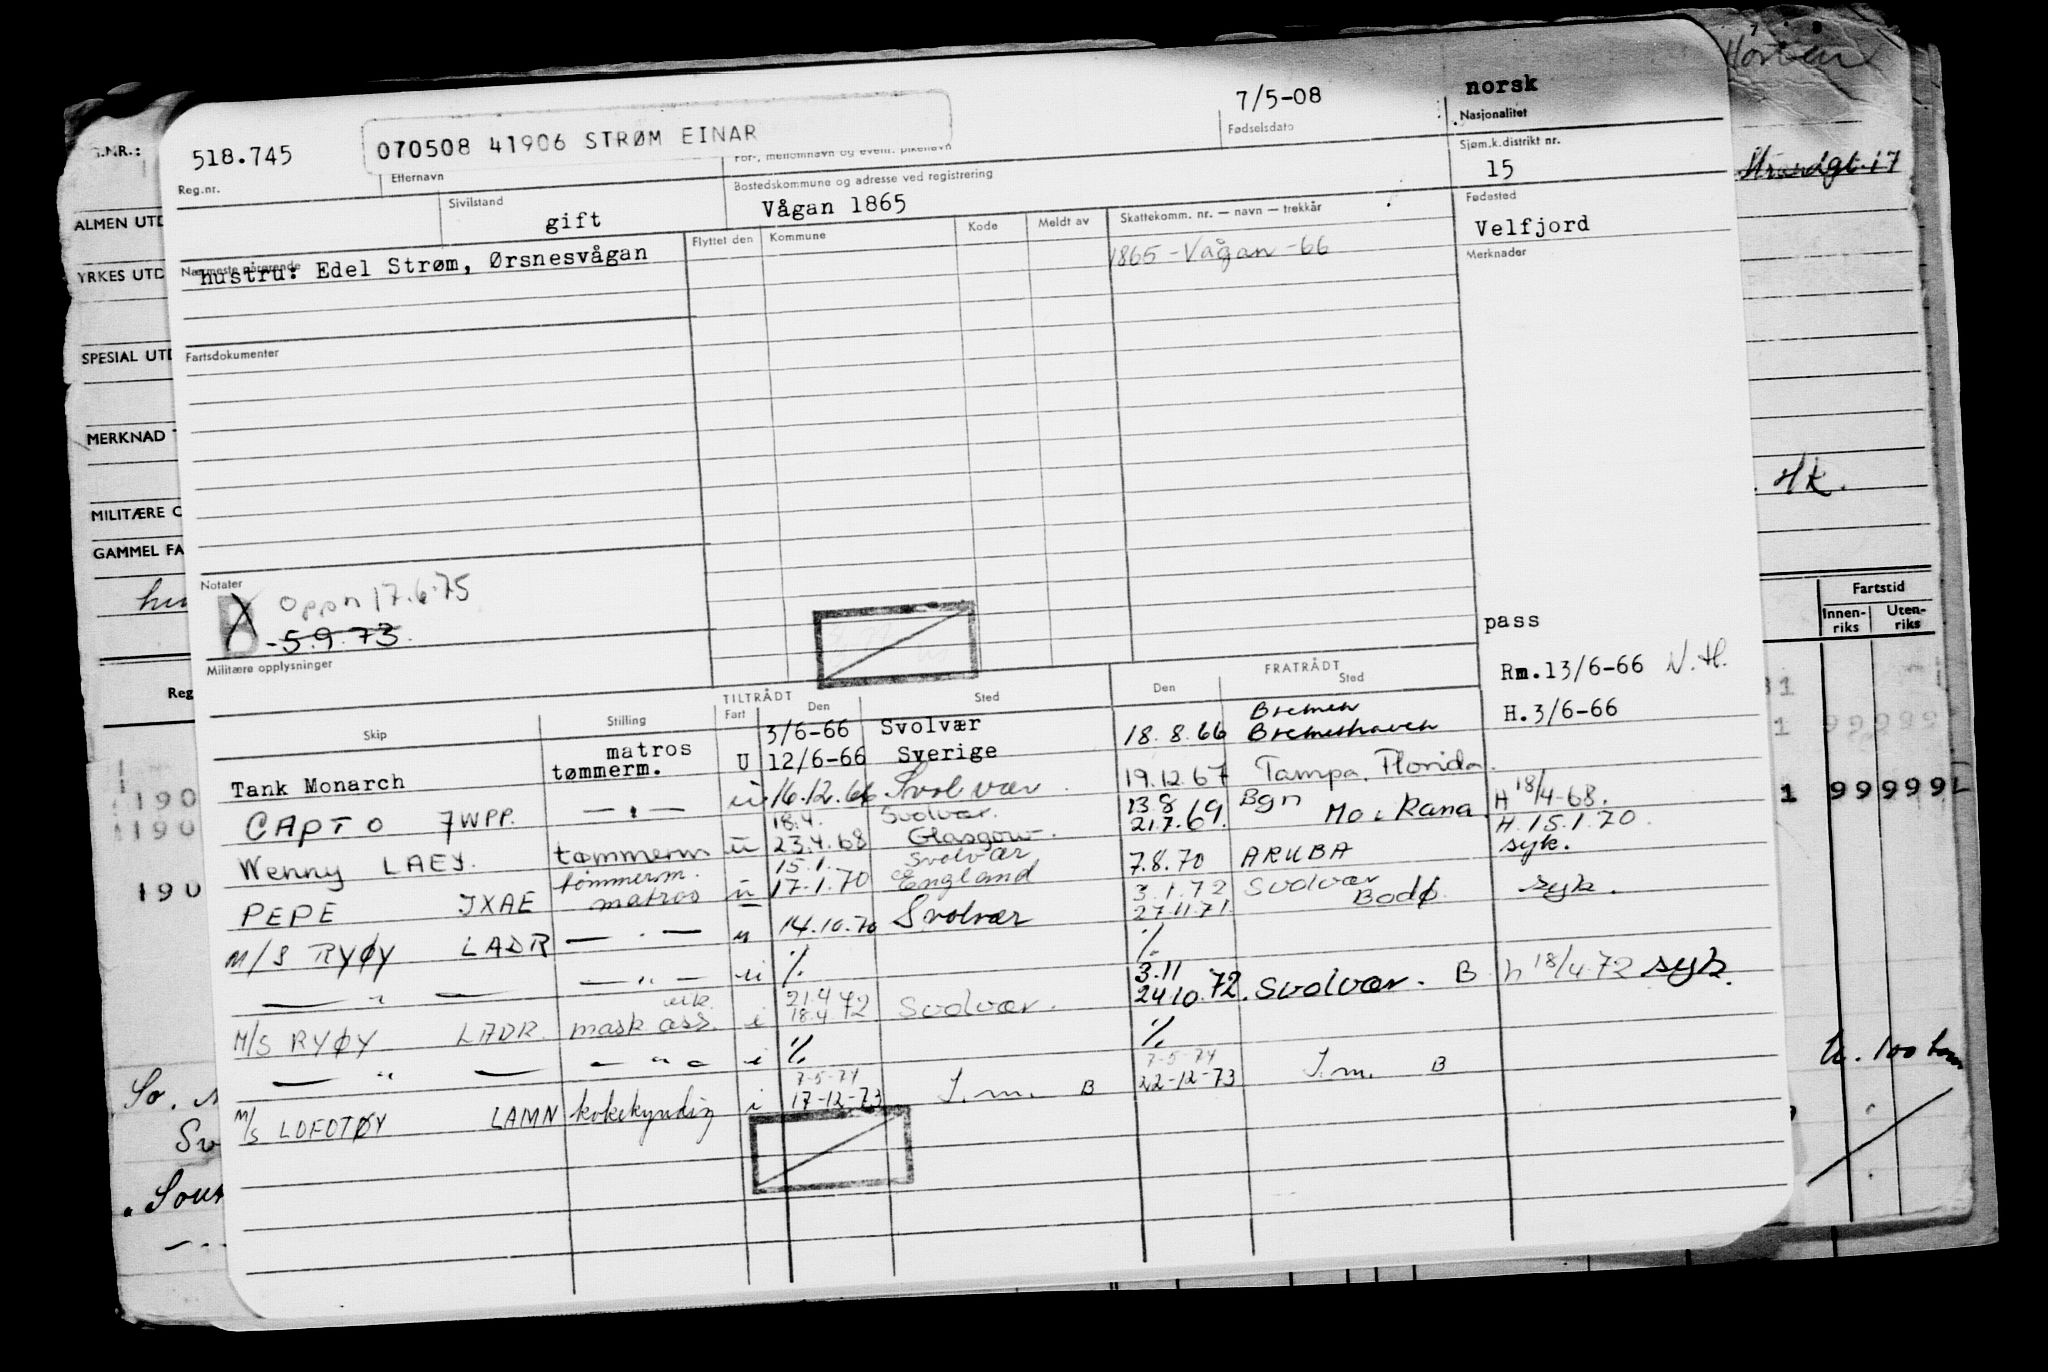 518.745
Reg.nr.
070508 41906 STRØM EINAR
Etternavn
For-, mellomnavn og event. pikenavn
7/5-08
Fødselsdato
norsk
Nasjonalitet
Sivilstand
gift
Bostedskommune og adresse ved registrering
Vågan 1865
Sjøm.k.distrikt nr.
15
Nærmeste pårørende
hustru: Edel Strøm, Ørsnesvågan
Flyttet den Kommune Kode Meldt av Skattekomm. nr. — navn — trekkår
1865 - Vågan - 66
Fødested
Velfjord
Merknader
Fartsdokumenter
Notater
Oppn 17.6.75
-5.9.73.
Militære opplysninger
pass
Rm.13/6-66 N.H.
H.3/6-66
TILTRÅDT FRATRÅDT
Skip Stilling Fart Den Sted Den Sted
matros 3/6-66 Svolvær Bremen
Tank Monarch tømmerm. U 12/6-66 Sverige 18.8.66 Bremerhaven
CAPTO 7WPP. — " — u 16.12.66 Svolvær. 19.12.67 Tampa, Florida.
18.4. Svolvær. 23.8 Bgn H 18/4-68.
Wenny LAEY. tømmerm u 23.4.68 Glasgow. 21.7.69. Mo i Rana H.15.1.70.
tømmerm. 15.1. Svolvær
PEPE JXAE matros u 17.1.70 England 7.8.70 ARUBA syk.
3.1.72 Svolvær
M/S RYØY LADR — " — u 14.10.70 Svolvær 27.11.71. Bodø. syk.
— " — — " — ui % %
vik. 21.4 3.11
M/S RYØY LADR. mask ass. i 18.4 72 Svolvær. 24.10.72. Svolvær. B h 18/4 72 syk.
— " — — " — i % %
7-5-74 7-5-74
M/S LOFOTØY LAMN kokekyndig i 17-12-73 I.m. B 22-12-73 I.m. B
ALMEN UTD
YRKES UTD
SPESIAL UTD
MERKNAD
MILITÆRE
GAMMEL FA
Reg
190
190
190
Strandgt. 17
HK.
Fartstid
Innen-riks Uten-riks
1 99999